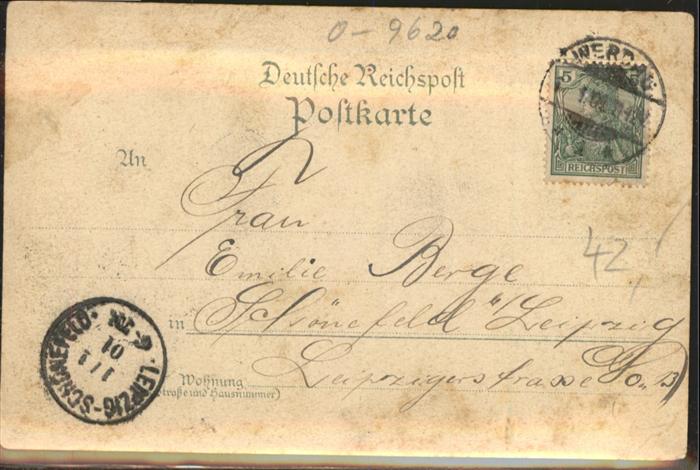 0-9620
WERDAU
5 5
REICHSPOST
Deutsche Reichspost
Postkarte
An
Frau
Emilie Berge
42
in Schönefeld b/Leipzig
Wohnung
(Straße und Hausnummer)
Leipzigerstrasse
LEIPZIG-SCHÖNEFELD
1/1
01